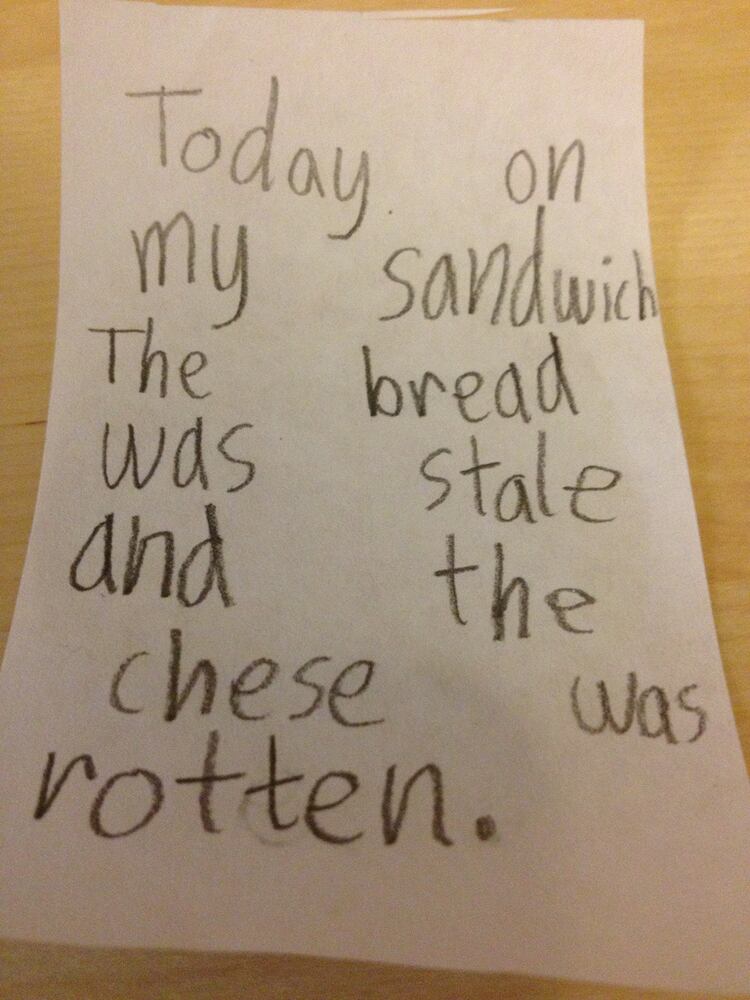 Today on
my sandwich
The bread
was stale
and the
chese was
rotten.